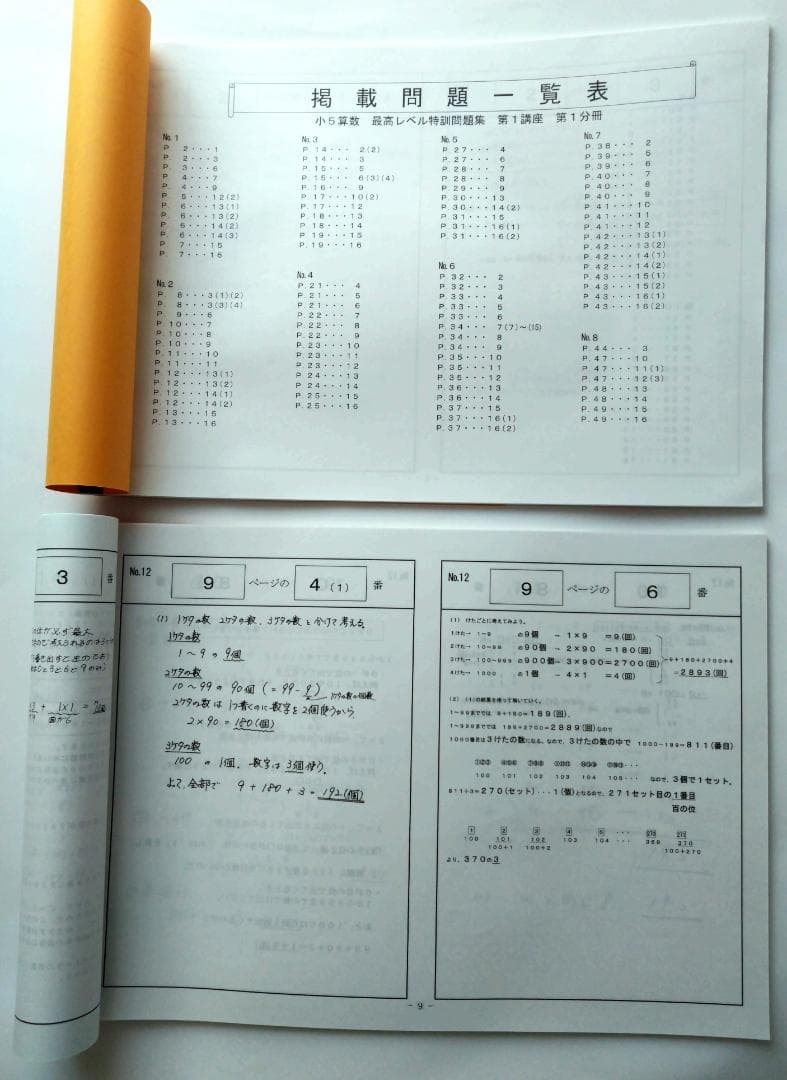 掲載問題一覧表
小5算数 最高レベル特訓問題集 第1講座 第1分冊
No.1
P. 2・・・1
P. 2・・・3
P. 3・・・6
P. 4・・・7
P. 4・・・9
P. 5・・・12(2)
P. 6・・・13(1)
P. 6・・・13(2)
P. 6・・・14(2)
P. 6・・・14(3)
P. 7・・・15
P. 7・・・16
No.2
P. 8・・・3(1)(2)
P. 8・・・3(3)(4)
P. 9・・・6
P.10・・・7
P.10・・・8
P.10・・・9
P.11・・・10
P.11・・・11
P.12・・・13(1)
P.12・・・13(2)
P.12・・・14(1)
P.12・・・14(2)
P.13・・・15
P.13・・・16
No.3
P.14・・・2(2)
P.14・・・3
P.15・・・5
P.15・・・6(3)(4)
P.16・・・9
P.17・・・10(2)
P.17・・・12
P.18・・・13
P.18・・・14
P.19・・・15
P.19・・・16
No.4
P.21・・・4
P.21・・・5
P.21・・・6
P.22・・・7
P.22・・・8
P.22・・・9
P.23・・・10
P.23・・・11
P.23・・・12
P.24・・・13
P.24・・・14
P.25・・・15
P.25・・・16
No.5
P.27・・・4
P.27・・・6
P.28・・・7
P.28・・・8
P.29・・・9
P.30・・・13
P.30・・・14(2)
P.31・・・15
P.31・・・16(1)
P.31・・・16(2)
No.6
P.32・・・2
P.32・・・3
P.33・・・4
P.33・・・5
P.33・・・6
P.34・・・7(7)~(15)
P.34・・・8
P.34・・・9
P.35・・・10
P.35・・・11
P.35・・・12
P.36・・・13
P.36・・・14
P.37・・・15
P.37・・・16(1)
P.37・・・16(2)
No.7
P.38・・・2
P.39・・・5
P.39・・・6
P.40・・・7
P.40・・・8
P.40・・・9
P.41・・・10
P.41・・・11
P.41・・・12
P.42・・・13(1)
P.42・・・13(2)
P.42・・・14(1)
P.42・・・14(2)
P.43・・・15(1)
P.43・・・15(2)
P.43・・・16(1)
P.43・・・16(2)
No.8
P.44・・・3
P.47・・・10
P.47・・・11(1)
P.47・・・12(3)
P.48・・・13
P.48・・・14
P.49・・・15
P.49・・・16
3 番
No.12 9 ページの 4(1) 番
(1) 1ケタの数 2ケタの数、3ケタの数と分けて考える。
1ケタの数
1〜9の9個
2ケタの数
10〜99の90個(=99-9)
1ケタの数の個数
2ケタの数は1つ書くのに数字を2個使うから
2×90=180(個)
3ケタの数
100の1個、数字は3個使う。
よって、全部で 9+180+3=192(個)
No.12 9 ページの 6 番
(1) けたごとに考えてみよう。
1けた→ 1~9 の9個 → 1×9 =9(回)
2けた→ 10~99 の90個 → 2×90 =180(回)
3けた→ 100~999 の900個 → 3×900=2700(回)
4けた→ 1000 の1個 → 4×1 =4(回)
9+180+2700+4
=2893(回)
(2) (1)の結果を使って解いていく。
1~99まででは 9+180=189(回)、
1~999まででは 189+2700=2889(回)なので
1000番目は3けたの数になる。なので、3けたの数の中で 1000-189=811(番目)
100 101 102 103 104 105・・・ なので、3個で1セット。
811÷3=270(セット)・・・1(個)となるので、271セット目の1番目
百の位
1 2 3 4 5 ・・・ 270 271
100 101 102 103 104 ・・・ 369 370
100+1 100+2 100+270
より、370の3
- 9 -